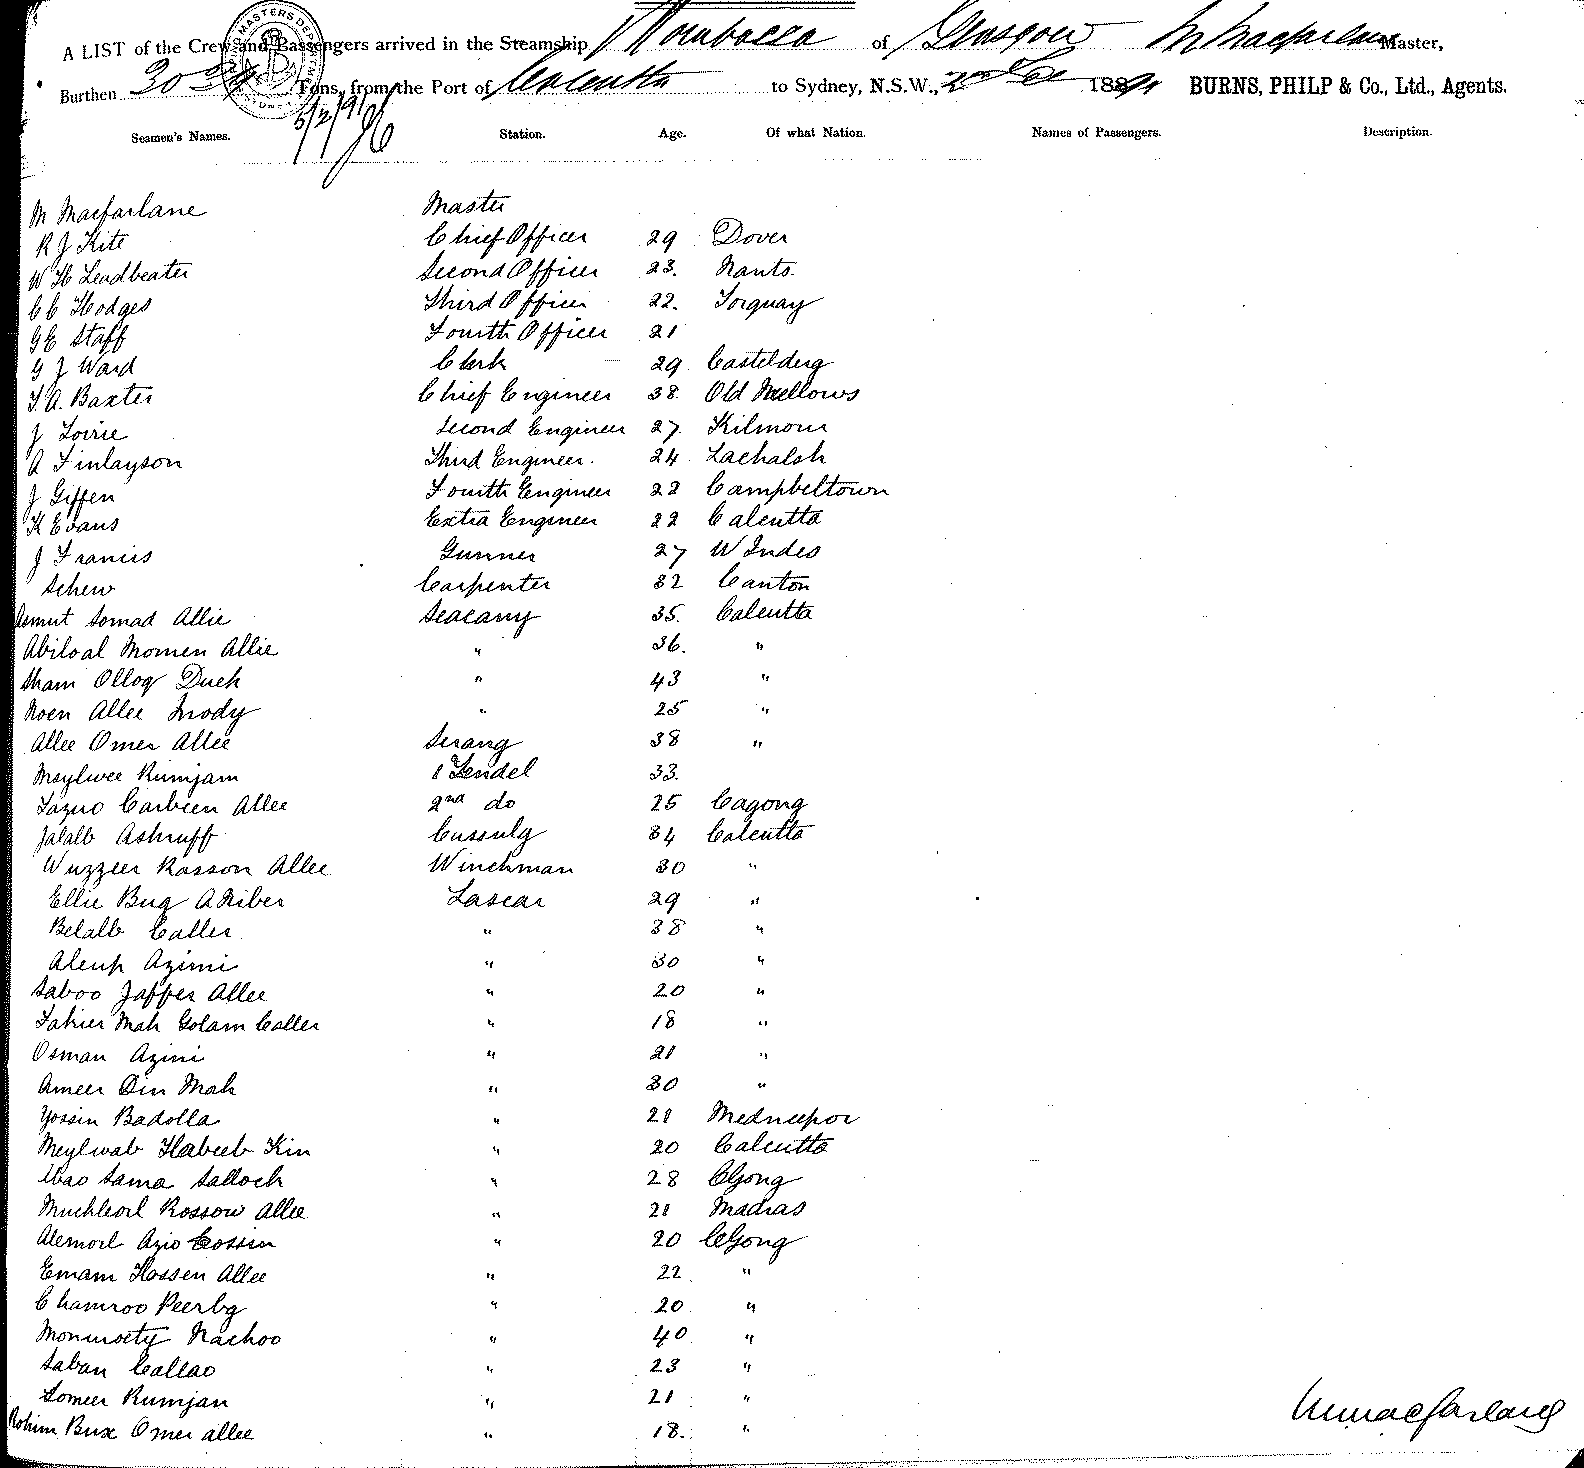 A LIST of the Crew and Passengers arrived in the Steamship Wombacca of Glasgow M Macfarlane Master,
Burthen 3024 Tons, from the Port of Calcutta to Sydney, N.S.W., 2nd 1891 BURNS, PHILP & Co., Ltd., Agents.
Seamen's Names. Station. Age. Of what Nation. Names of Passengers. Description.
M Macfarlane Master
R J Kite Chief Officer 29 Dover
W H Leadbeater Second Officer 23. Nants.
C C Hodges Third Officer 22. Torquay
G E Staff Fourth Officer 21
G J Ward Clerk 29 Castelderg
T. A. Baxter Chief Engineer 38. Old Mellows
J Loirie Second Engineer 27. Kilmorie
A Finlayson Third Engineer. 24 Lachalsh
J Giffen Fourth Engineer 22 Campbeltown
K Evans Extra Engineer 22 Calcutta
J Francis Gunner 27 W Indes
Schew Carpenter 32 Canton
Somad Allie Seacany 35. Calcutta
Abiloal Momen Allie " 36. "
Sham Ollog Duck " 43 "
Noen Allee Mody " 25 "
Allee Omer Allee Serang 38 "
Moylwee Rumjam 1 Tendel 33.
Tazuo Carbeen Allee 2nd do 25 Cagong
Jalalb Ashruff Cussulg 34 Calcutta
Wuzzeer Rosson Allee Winchman 30 "
Ellie Bug A Riber Lascar 29 "
Belalb Caller " 38 "
Aleup Azimi " 30 "
Saboo Jaffer Allee " 20 "
Takier Mah Golam Caller " 18 "
Osman Azini " 21 "
Ameer Din Mah " 30 "
Yossin Badolla " 21 Medneepor
Meylwab Habeeb Kin " 20 Calcutta
Abao Sama Salloch " 28 CGong
Muchleoil Rossow Allee " 21 Madras
Alemoil Azio Cossin " 20 CGong
Emam Hossen Allee " 22 "
Chamroo Peerbg " 20 "
Monuroety Nachoo " 40 "
Saban Callao " 23 "
Lomeer Rumjan " 21 "
Rohim Bux Omer allee " 18. "
M Macfarlane